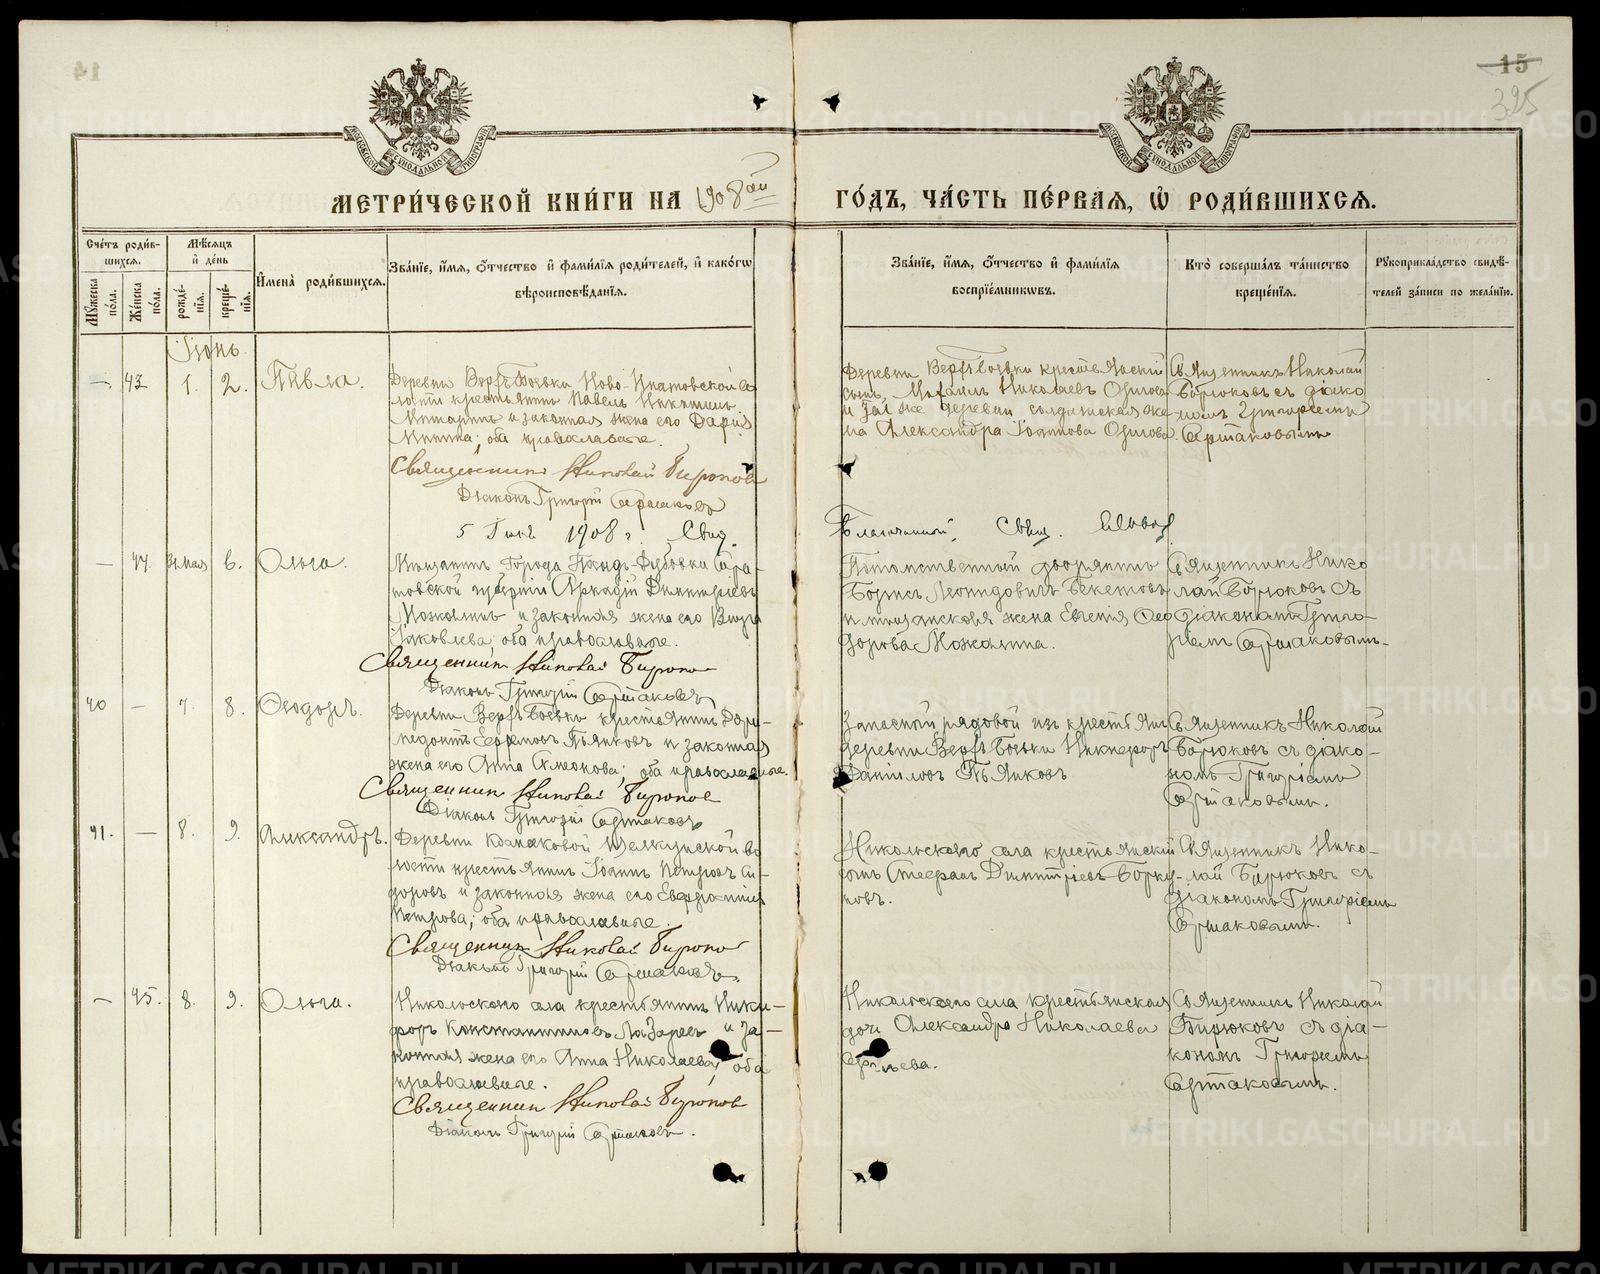 15
325
МОСКОВСКОЙ СѴНОДАЛЬНОЙ ТИПОГРАФІИ
МОСКОВСКОЙ СѴНОДАЛЬНОЙ ТИПОГРАФІИ
МЕТРИ́ЧЕСКОЙ КНИ́ГИ НА 1908ой
ГО́ДЪ, ЧА́СТЬ ПЕ́РВАЯ, Ѡ РОДИ́ВШИХСЯ.
Сче́тъ роди́вшихся.
Мꙋ́жеска по́ла.
Же́нска по́ла.
Мѣ́сяцъ и҆ де́нь
рожде́нїя.
креще́нїя.
И҆мена̀ роди́вшихся.
Зва́нїе, и҆́мя, ѻ҆́тчество и҆ фами́лїя роди́телей, и҆ како́гѡ
вѣроисповѣ́данїя.
Зва́нїе, и҆́мя, ѻ҆́тчество и҆ фами́лїя
воспрїе́мникѡвъ.
Кто̀ соверша́лъ та́инство
креще́нїя.
Рꙋкоприкла́дство свидѣ́-
телей за́писи по жела́нїю.
Іюнь.
— 43 1. 2.
Деревни Верхъ Боевки Ново-Ипатовской во-
лости крестьянинъ Павелъ Никитинъ
и законная жена его Дарія
оба православные.
Священникъ Николай Бирюковъ
Діаконъ Григорій
Деревни Верхъ Боевки крестьянскій
сынъ Михаилъ Николаевъ
и той же деревни солдатская же-
на Александра Іоаннова
Священникъ Николай
Бирюковъ съ діако-
номъ Григоріемъ
5 Іюня 1908 г. Свид.
Благочинный, Свящ.
— 44. 31 Мая 6. Ольга.
Мѣщанинъ города Сара-
товской губерніи Аркадій Димитріевъ
Можалинъ и законная жена его Вѣра
Яковлева; оба православные.
Священникъ Николай Бирюков
Діаконъ Григорій
Потомственный дворянинъ
Борисъ Леонидовичъ Бекетовъ
и мѣщанская жена Евгенія Ѳео-
дорова Можалина.
Священникъ Нико-
лай Бирюковъ съ
діакономъ Григо-
ріемъ
40 — 7. 8. Ѳеодоръ.
Деревни Верхъ Боевки крестьянинъ
Ефремовъ Пьянковъ и законная
жена его Анна Симеонова; оба православные.
Священникъ Николай Бирюков
Діаконъ Григорій
Запасный рядовой изъ крестьянъ
деревни Верхъ Боевки Никифоръ
Даниловъ Пьянковъ
Священникъ Николай
Бирюковъ съ діако-
номъ Григоріемъ
41. — 8. 9. Александръ.
Деревни во-
лости крестьянинъ Іоаннъ Петровъ Си-
доровъ и законная жена его Евфросинія
Петрова; оба православные.
Священникъ Николай Бирюков
Діаконъ Григорій
Никольскаго села крестьянскій
сынъ Стефанъ Димитріевъ
Священникъ Нико-
лай Бирюковъ съ
діакономъ Григоріемъ
— 45. 8. 9. Ольга.
Никольскаго села крестьянинъ Ники-
форъ Константиновъ Лазаревъ и за-
конная жена его Анна Николаева; оба
православные.
Священникъ Николай Бирюков
Діаконъ Григорій
Никольскаго села крестьянская
дочь Александра Николаева
Священникъ Николай
Бирюковъ съ діа-
кономъ Григоріемъ
METRIKI.GASO-URAL.RU